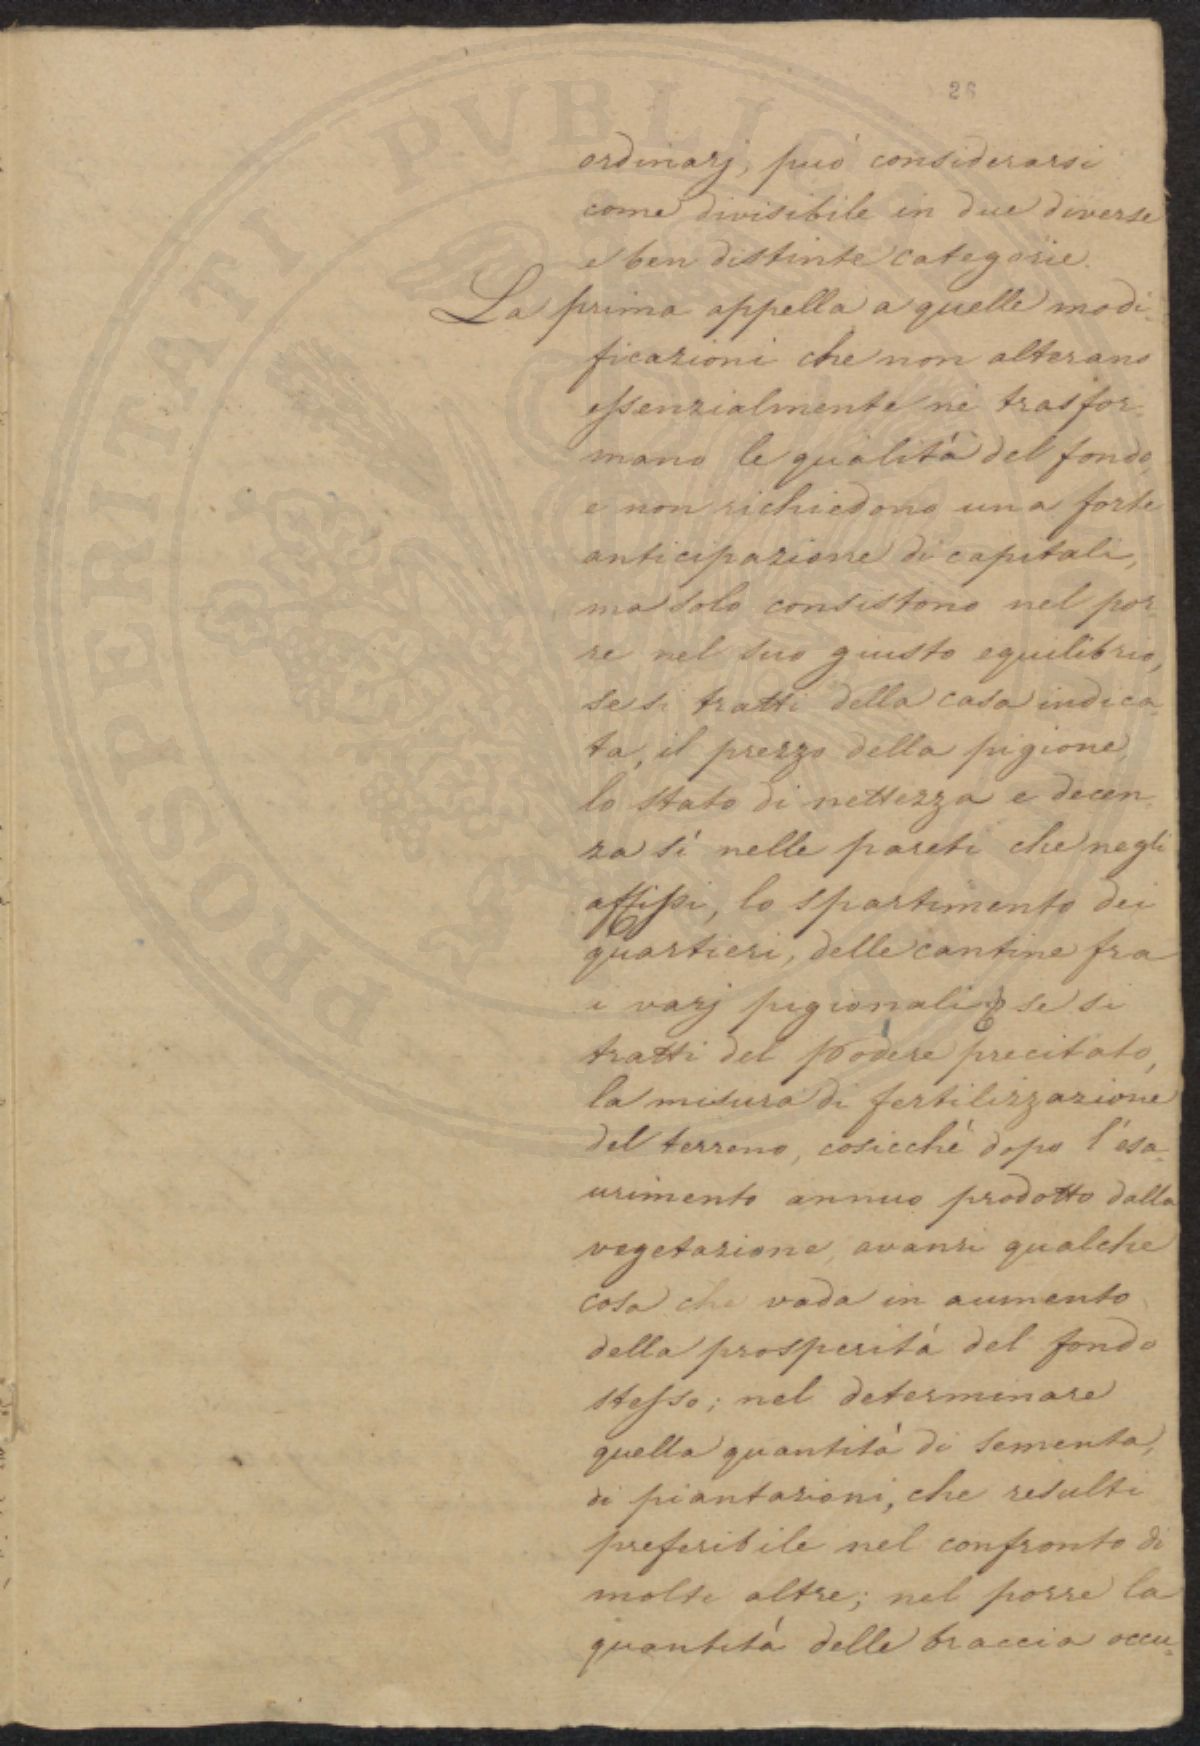 26
ordinarj, può considerarsi
come divisibile in due diverse
e ben distinte categorie.
La prima appella a quelle modi-
ficazioni che non alterano
essenzialmente nè trasfor-
mano le qualità del fondo,
e non richiedono una forte
anticipazione di capitali,
ma solo consistono nel por-
re nel suo giusto equilibrio,
se si tratti della casa indica-
ta, il prezzo della pigione,
lo stato di nettezza e decen-
za sì nelle pareti che negli
affissi, lo spartimento dei
quartieri, delle cantine fra
i varj pigionali; se si
tratti del podere precitato,
la misura di fertilizzazione
del terreno, cosicchè dopo l'esa-
urimento annuo prodotto dalla
vegetazione, avanzi qualche
cosa che vada in aumento
della prosperità del fondo
stesso; nel determinare
quella quantità di sementa,
di piantazioni, che resulti
preferibile nel confronto di
molte altre; nel porre la
quantità delle braccia occu-
PROSPERITATI PVBLICAE